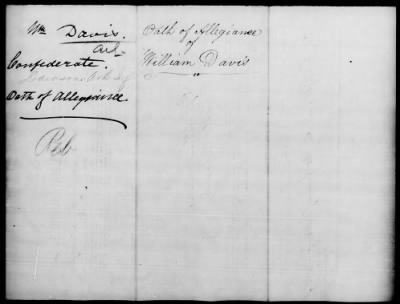 Wm Davis.
Confederate.
Oath of Allegiance.
Reb
Oath of Allegiance
of
William Davis
"